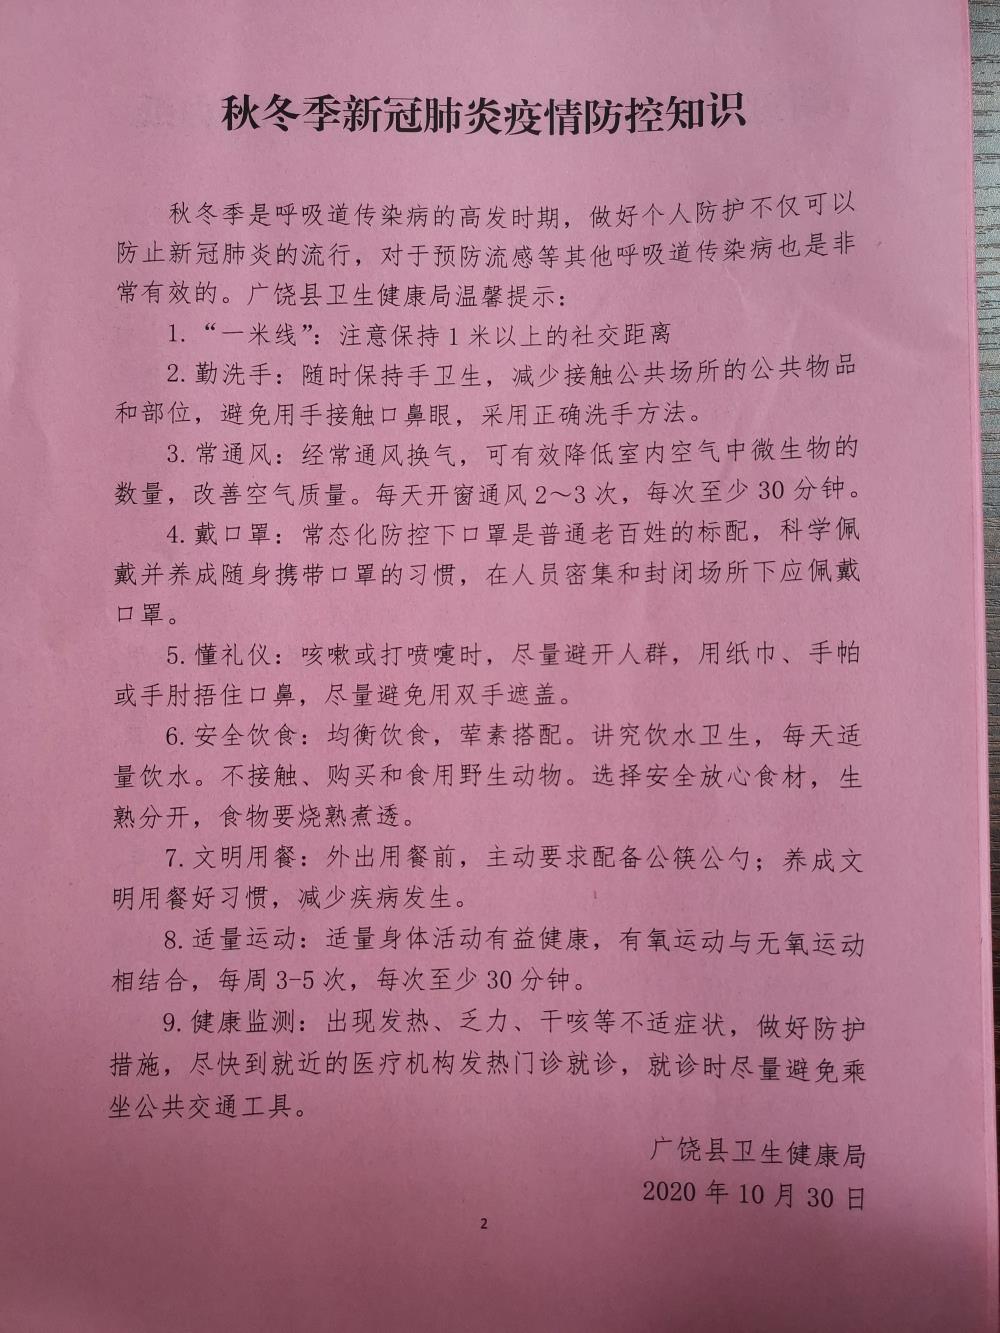 秋冬季新冠肺炎疫情防控知识
秋冬季是呼吸道传染病的高发时期，做好个人防护不仅可以
防止新冠肺炎的流行，对于预防流感等其他呼吸道传染病也是非
常有效的。广饶县卫生健康局温馨提示：
1. “一米线”：注意保持 1 米以上的社交距离
2. 勤洗手：随时保持手卫生，减少接触公共场所的公共物品
和部位，避免用手接触口鼻眼，采用正确洗手方法。
3. 常通风：经常通风换气，可有效降低室内空气中微生物的
数量，改善空气质量。每天开窗通风 2～3 次，每次至少 30 分钟。
4. 戴口罩：常态化防控下口罩是普通老百姓的标配，科学佩
戴并养成随身携带口罩的习惯，在人员密集和封闭场所下应佩戴
口罩。
5. 懂礼仪：咳嗽或打喷嚏时，尽量避开人群，用纸巾、手帕
或手肘捂住口鼻，尽量避免用双手遮盖。
6. 安全饮食：均衡饮食，荤素搭配。讲究饮水卫生，每天适
量饮水。不接触、购买和食用野生动物。选择安全放心食材，生
熟分开，食物要烧熟煮透。
7. 文明用餐：外出用餐前，主动要求配备公筷公勺；养成文
明用餐好习惯，减少疾病发生。
8. 适量运动：适量身体活动有益健康，有氧运动与无氧运动
相结合，每周 3-5 次，每次至少 30 分钟。
9. 健康监测：出现发热、乏力、干咳等不适症状，做好防护
措施，尽快到就近的医疗机构发热门诊就诊，就诊时尽量避免乘
坐公共交通工具。
广饶县卫生健康局
2020 年 10 月 30 日
2